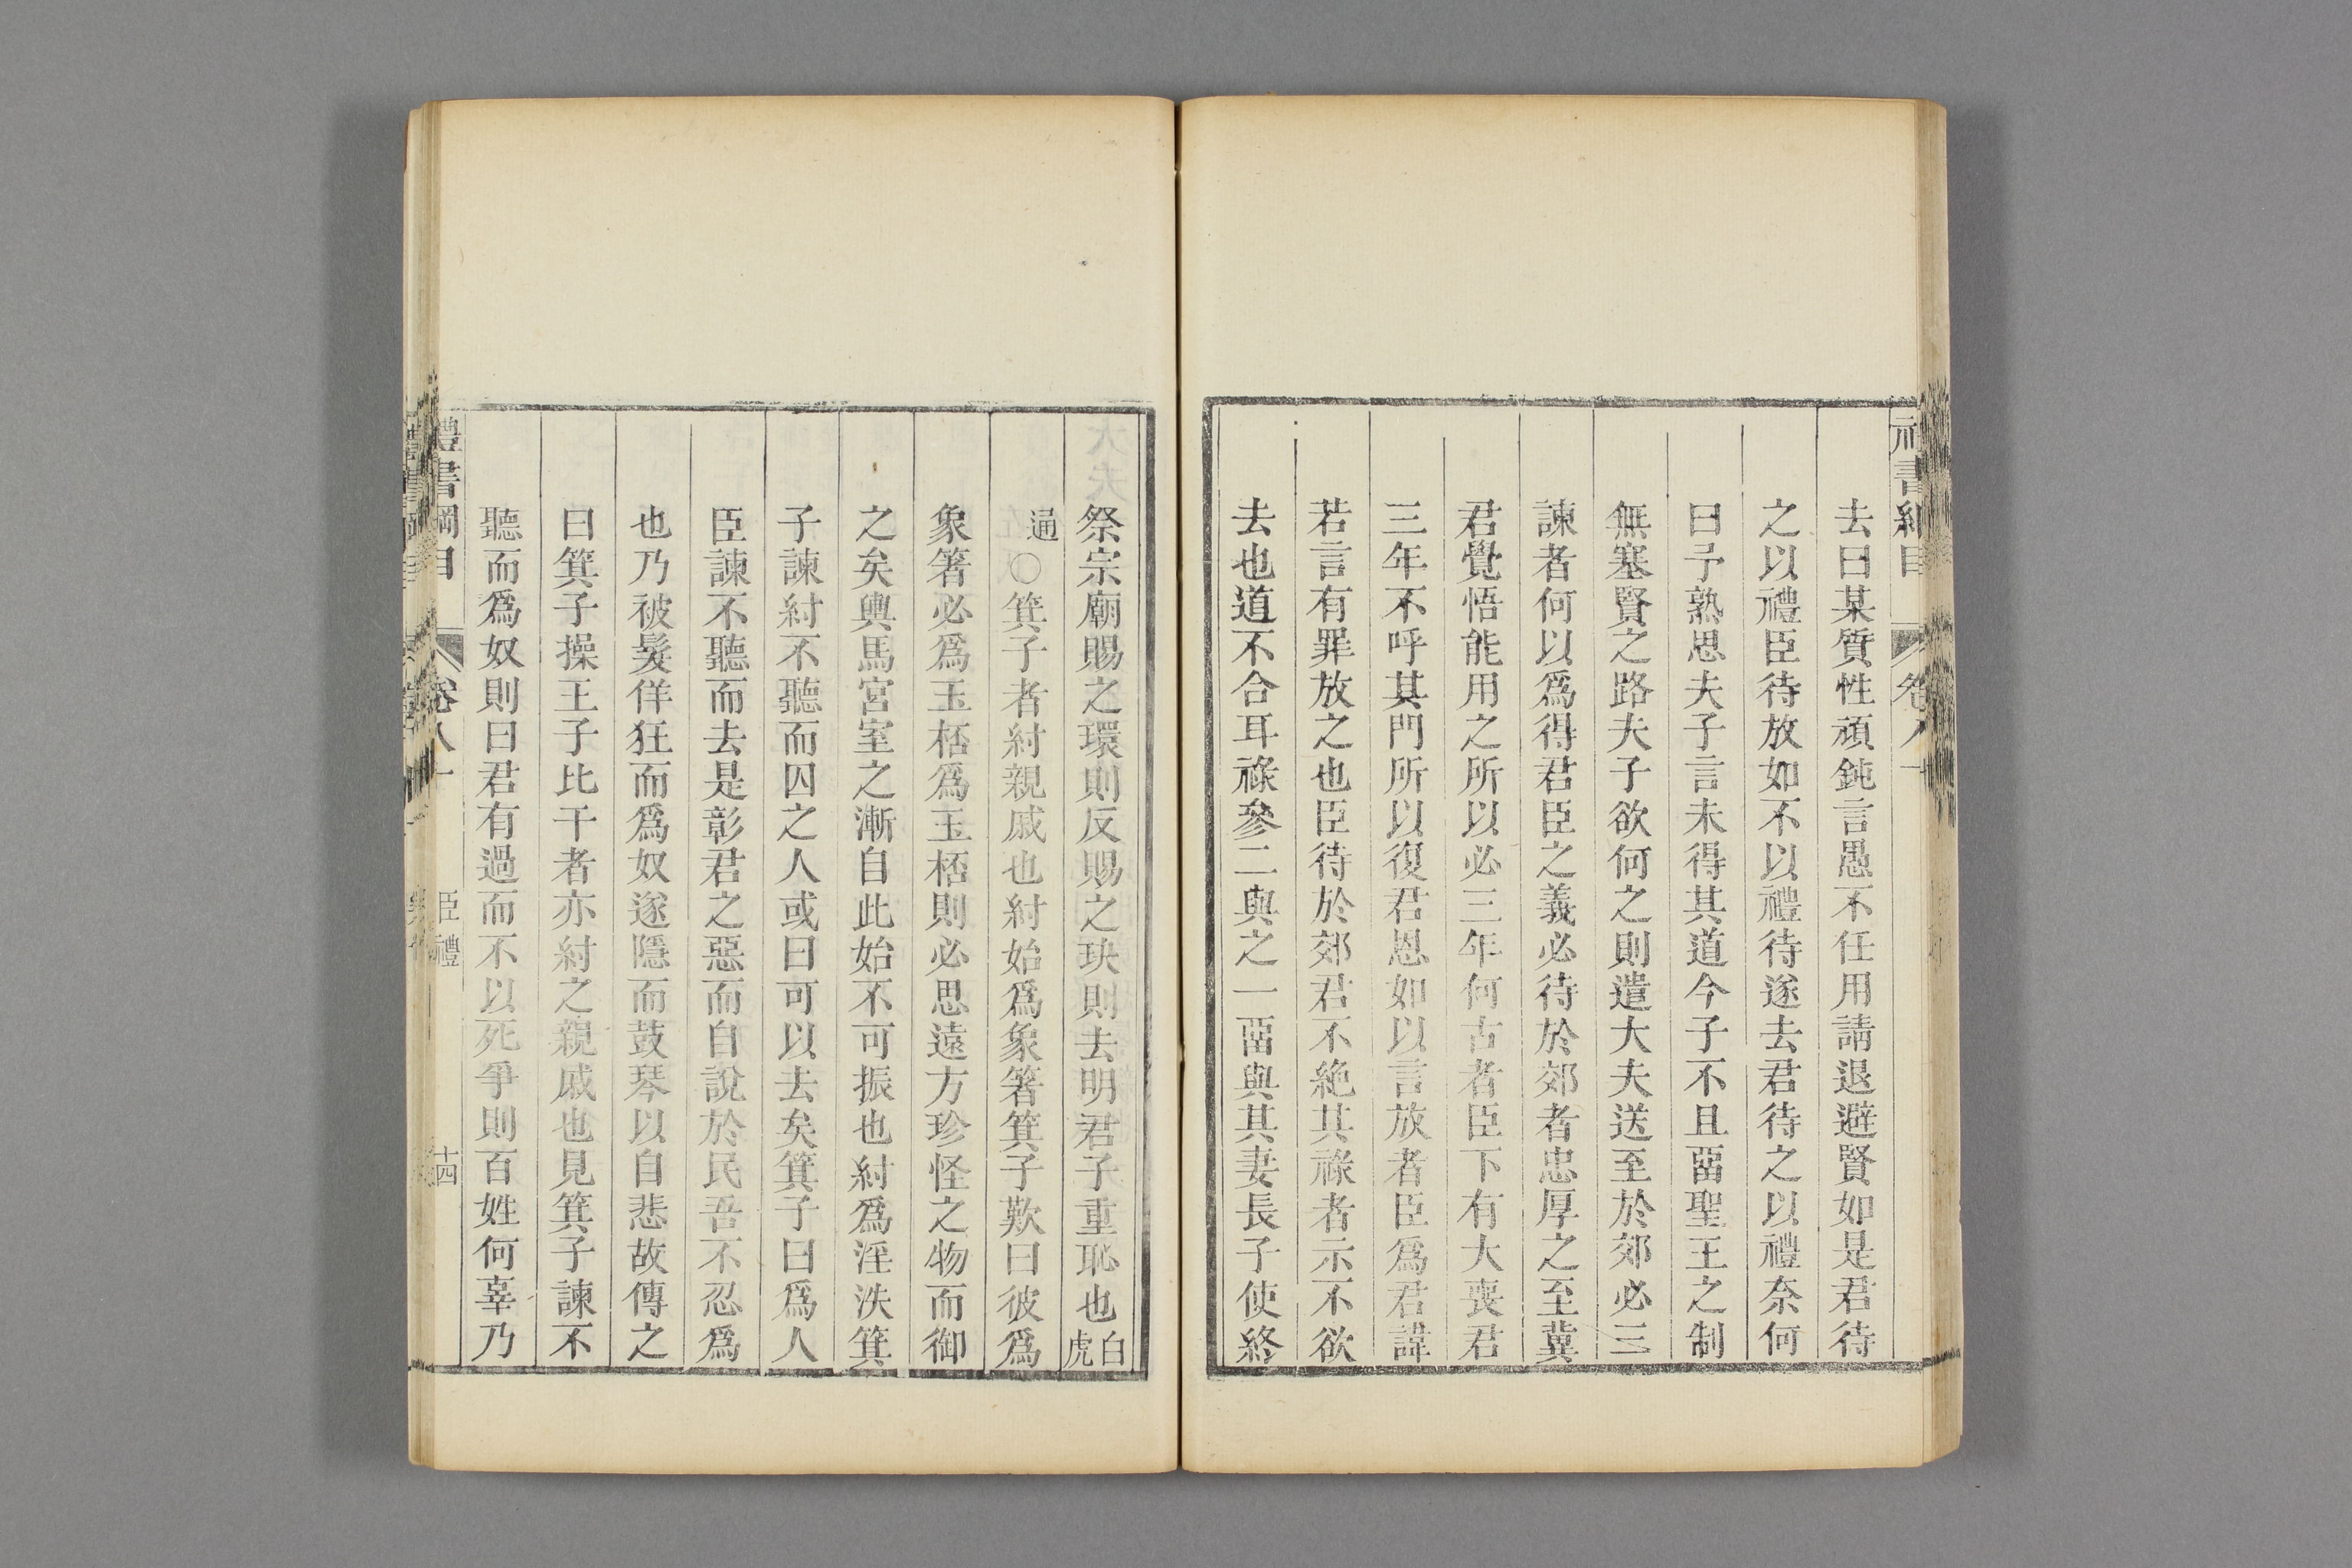 去曰某質性頑鈍言愚不任用請退避賢如是君待
之以禮臣待放如不以禮待遂去君待之以禮奈何
曰予熟思夫子言未得其道今子不且畱聖王之制
無塞賢之路夫子欲何之則遣大夫送至於郊必三
諫者何以爲得君臣之義必待於郊者忠厚之至冀
君覺悟能用之所以必三年何古者臣下有大喪君
三年不呼其門所以復君恩如以言放者臣爲君諱
若言有罪放之也臣待於郊君不絶其祿者示不欲
去也道不合耳祿參二與之一畱與其妻長子使終
祭宗廟賜之環則反賜之玦則去明君子重恥也白虎
通○箕子者紂親戚也紂始爲象箸箕子歎曰彼爲
象箸必爲玉桮爲玉桮則必思遠方珍怪之物而御
之矣輿馬宮室之漸自此始不可振也紂爲淫泆箕
子諫紂不聽而囚之人或曰可以去矣箕子曰爲人
臣諫不聽而去是彰君之惡而自說於民吾不忍爲
也乃被髮佯狂而爲奴遂隱而鼓琴以自悲故傳之
曰箕子操王子比干者亦紂之親戚也見箕子諫不
聽而爲奴則曰君有過而不以死爭則百姓何辜乃
禮書綱目 卷八十 臣禮 十四